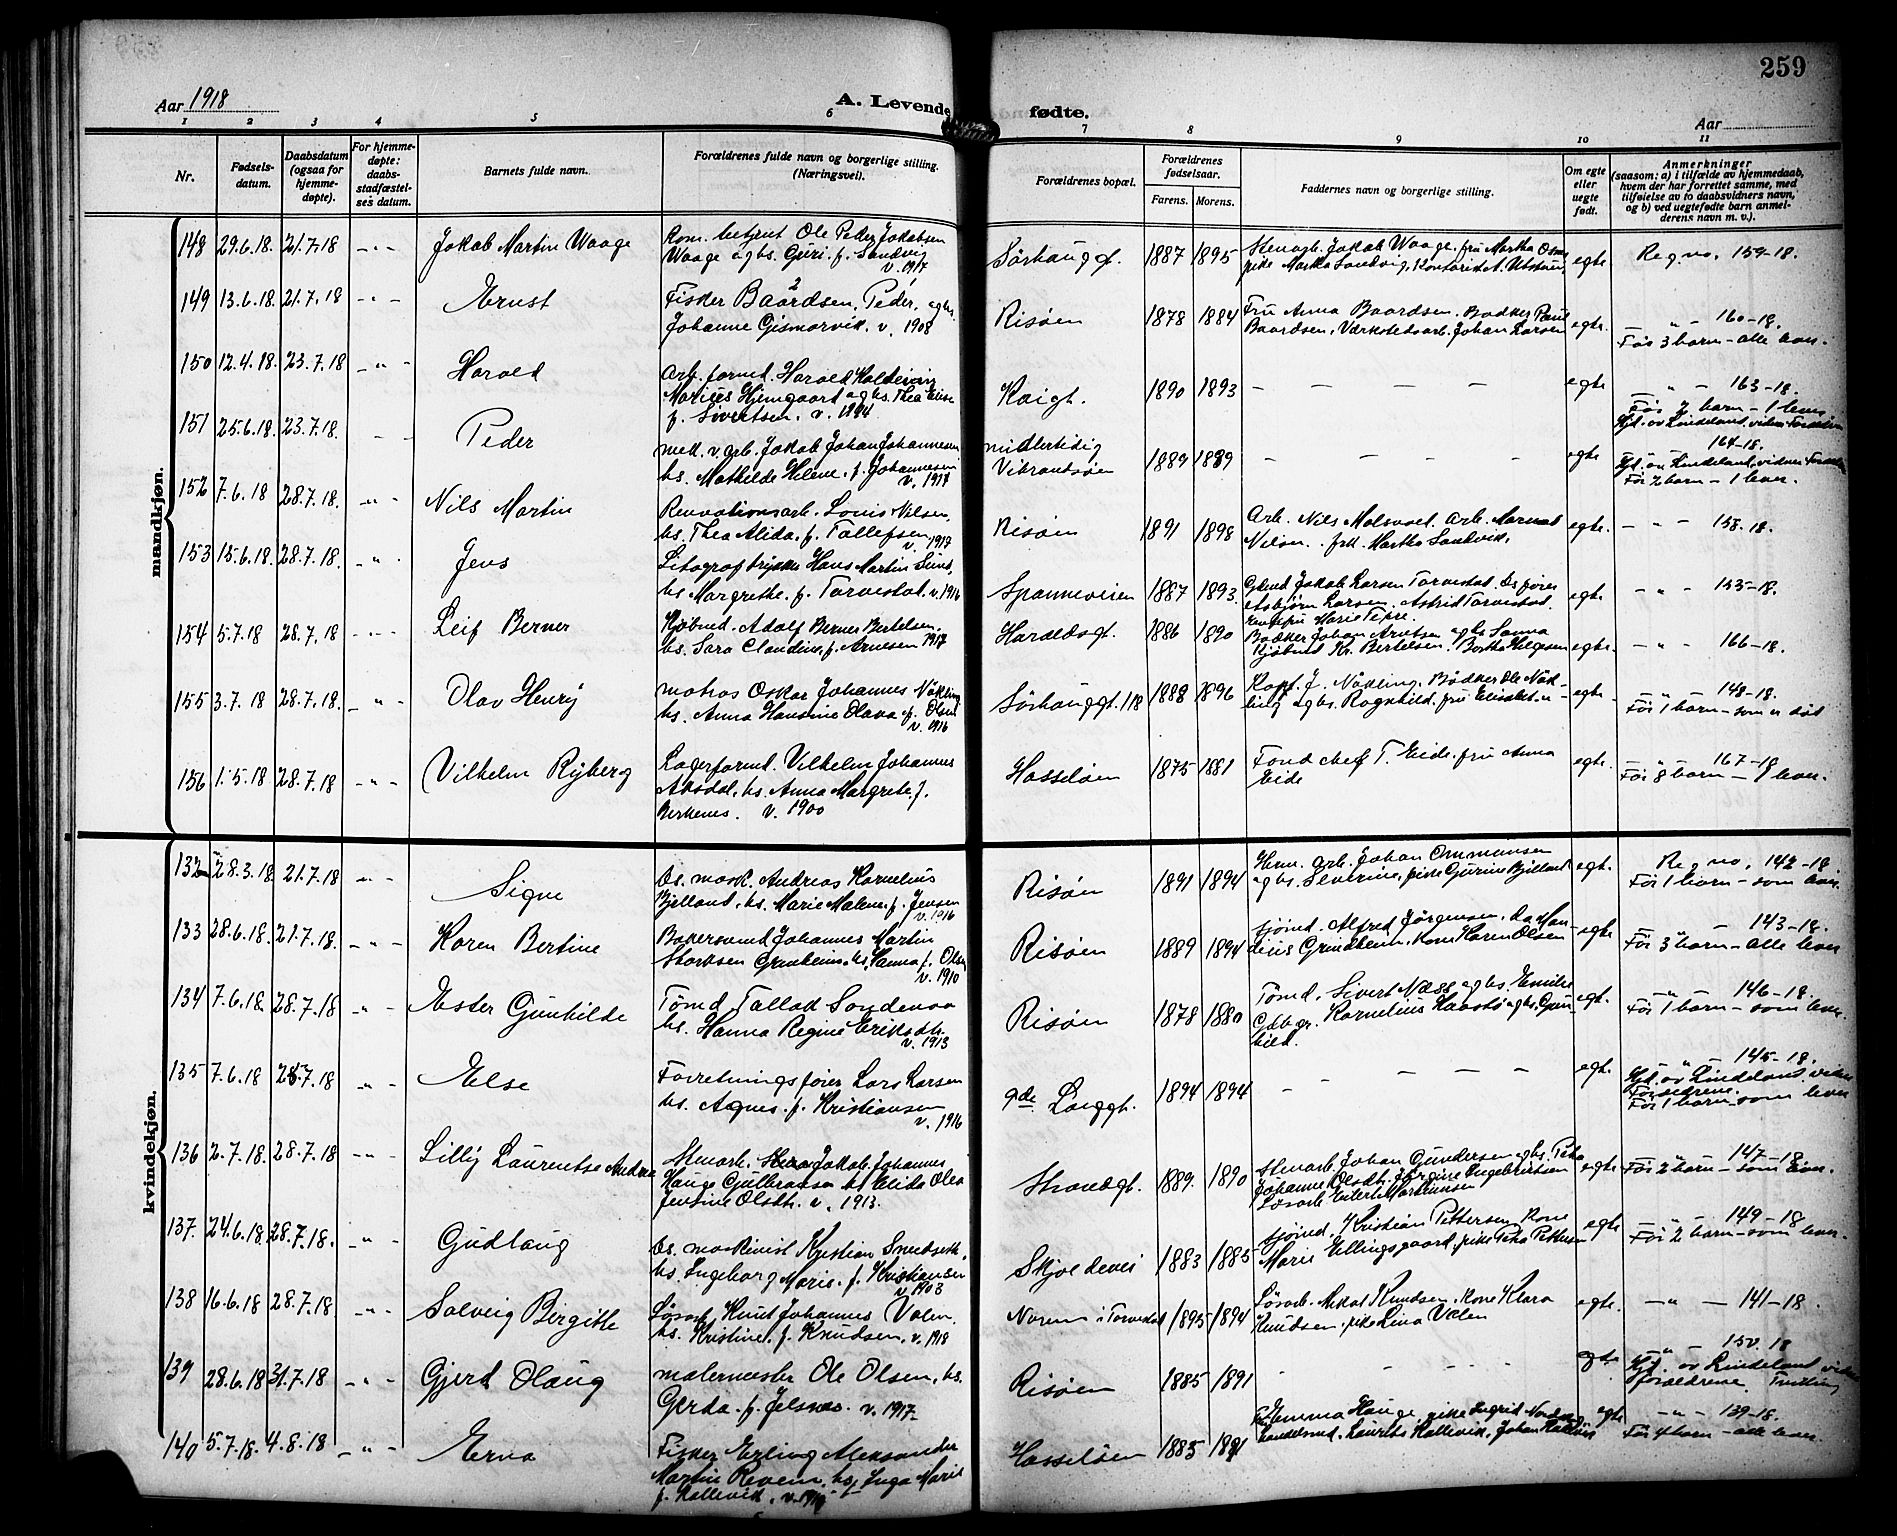 259
Aar 1918
A. Levende fødte.
Aar
1 2 3 4 5 6 7 8 9 10 11
Nr.
Fødsels-
datum.
Daabsdatum
(ogsaa for
hjemme-
døpte).
For hjemme-
døpte:
daabs-
stadfæstel-
ses datum.
Barnets fulde navn.
Forældrenes fulde navn og borgerlige stilling.
(Næringsvei).
Forældrenes bopæl.
Forældrenes
fødselsaar.
Farens. Morens.
Faddernes navn og borgerlige stilling.
Om egte
eller
uegte
født.
Anmerkninger
(saasom: a) i tilfælde av hjemmedaab,
hvem der har forrettet samme, med
tilføielse av to daabsvidners navn,
og b) ved uegtefødte barn anmel-
derens navn m. v.).
mandkjøn.
148 29.6.18. 21.7.18 - " - Jakob Martin Waage
Kom. betjent Ole Peder Jakobsen
Waage og hs. Guri. f. Sandvig
v. 1917
Sørhauggt. 1887 1895
Stenarb. Jakob Waage, fru Martha
pike Martha Sandvig, Kontorist
egte Reg no. 159-18.
149 13.6.18. 21.7.18 - " - Ernst
Fisker Baardsen, Peder, og hs.
Johanne Gismarvik. v. 1908
Risøen 1878 1884
Fru Anna Baardsen. Bødker Paul
Baardsen, Værkstedsarb. Johan Larsen
egte. - " - 160-18.
Før 3 barn - alle lever.
150 12.4.18. 23.7.18 - " - Harald
Arb. formd. Harald
Marius Hjemgaard og hs. Thea Elise
f. Sivertsen. v. 1914
Kaigt. 1890 1893 - - - - -
egte - " - 163-18.
Før 2 barn - 1 lever
Hjd. av Lindeland, vidner Forældrene
151 25.6.18. 23.7.18. - " - Peder
mek. v. arb. Jakob Johan Johannesen
hs. Mathilde Helene. f. Johannesen
v. 1917
midlertidig
Vibrandsøen 1889 1889 - - - -
egte 164-18.
Hjd. av Lindeland, vidner Forældre
Før 2 barn - 1 lever.
152 7.6.18 28.7.18. - " - Nils Martin
Renovationsarb. Louis Nilsen,
hs. Thea Alida. f. Tollefsen
v. 1917
Risøen 1891 1898
Arb. Nils Molsvaed. Arb.
Nilsen. frk. Martha Sandvik.
egte. - " - 158.18.
153 15.6.18. 28.7.18. - " - Jens
Litograf trykker Hans Martin Sund,
hs Margrethe. f. Torvestad. v. 1916
Spanneveien 1887 1893.
Gbmd Jakob Larsen Torvestad. Bs fører
Asbjørn Larsen. Astrid Torvestad.
Marie
egte. - " - 153-18.
154 5.7.18 28.7.18 - " - Leif Berner
Kjøbmd. Adolf Berner Bertelsen.
hs. Sara Claudine. f. Arnesen 1917
Haraldsgt. 1886 1890
Bødker Johan Arntsen og hs Sanna
Kjøbmd Kr. Bertelsen. Bertha Helgesen
egte. - " - 166-18.
155 3.7.18 28.7.18. - " - Olav Henry
matros Oskar Johannes Nökling
hs. Anna Hansine Olava f. Olsen
v. 1916
Sørhauggt. 118 1888 1896
Kapt. J. Nökling. Bødker Ole Nök-
ling og hs. Ragnhild. fru Elisabet
egte. - " - 148-18.
Før 1 barn - som er død
156 1.5.18 28.7.18 - " - Vilhelm Ryberg
Lagerformd. Vilhelm Johannes
Aksdal, hs. Anna Margrete. f.
Birkenes. v. 1900
Hasseløen 1875 1881
Fond chef T. Eide. fru Anna
Eide
egte. - " - 167-18
Før 8 barn - 7 lever.
kvindekjøn.
132 28.3.18. 21.7.18 - " - Signe
bs. mask. Andreas Kornelius
Bjelland. hs. Marie Malene f. Jensen
v. 1916
Risøen 1891 1894
Herm. arb. Johan Ommundsen
og hs. Severine, pike Gurine Bjelland
egte. Reg no. 142-18.
Før 1 barn - som lever.
133 28.6.18. 21.7.18. - " - Karen Bertine
Bakersvend Johannes Martin
Grindheim. hs. Hanna f. Olsen
v. 1910
Risøen 1889 1894
sjømd. Alfred Jørgensen. do Man-
dius Grindheim. Kone Karen Olsen
egte - " - 143-18.
Før 3 barn - alle lever
134 7.6.18. 28.7.18 - " - Ester Gunhilde
Tømd Tallad Sondenaa
hs. Hanna Regine Eriksdtr.
v. 1913
Risøen 1878 1880
Tømd. Sivert Næss og hs. Emilie
Gdbgr. Kornelius Haastø og hs. Gun-
hild.
egt. - " - 146-18.
Før 1 barn - som lever.
135 7.6.18 28.7.18 - " - Else
Forretningsfører Lars Larsen
hs. Agnes. f. Kristiansen
v. 1916
9de Længgt. 1894 1894 - - - - -
egte. - " - 145-18.
Hjd. av Lindeland, vidner
Forældrene.
Før 1 barn - som lever
136 2.7.18. 28.7.18 - " - Lilly Laurentse Andrea
Stenarb. Jakob Johannes
Hauge Gulbransen hs Elida Olea
Jensine Olsdtr. v. 1913.
Strandgt. 1889. 1890
Stenarb. Johan Gundersen og hs. Petra
Johanne Olsdtr. Jørgine Ingebriktsen
Løsarb. Martinusen
egte - " - 147-18
Før 2 barn - som lever.
137. 24.6.18. 28.7.18. - " - Gudlaug
bs. maskinist Kristian Smedseth,
hs. Ingeborg Marie. f. Kristiansen
v. 1903
Skjoldevei 1883 1885
sjømd. Kristian Pettersen. Kone
Marie Ellingsgaard, pike Petra Pettersen
egte - " - 149-18
Før 2 barn - som lever.
138 16.6.18 28.7.18 - " - Solveig Birgitte
Løsarb Knut Johannes Valen.
hs. Kristine. f. Knudsen. v. 1918
Norem i Torvestad 1895 1894
Løsarb. Mikal Knudsen. Kone Klara
Knudsen. pike Lina Valen
egte. - " - 141-18.
139 28.6.18 31.7.18 - " - Gjerd Olaug
malermester Ole Olsen, hs.
Gerda. f. Jelsnes. v. 1917
Risøen 1885 1891 - - - -
egte - " - 150.18
Hjd. av Lindeland vidner
forældrene. Tvilling
140 5.7.18. 4.8.18 - " - Erna
Fisker Erling Aleksander
Martin Revem, hs. Inga Marie
f. Kallevik. v. 19
Hasseløen 1885 1891
Emma Hauge, pike Ingrid
handelsmd. Laurits Kallevik, Johan Kallevik
egte - " - 139-18.
Før 4 barn - alle lever.